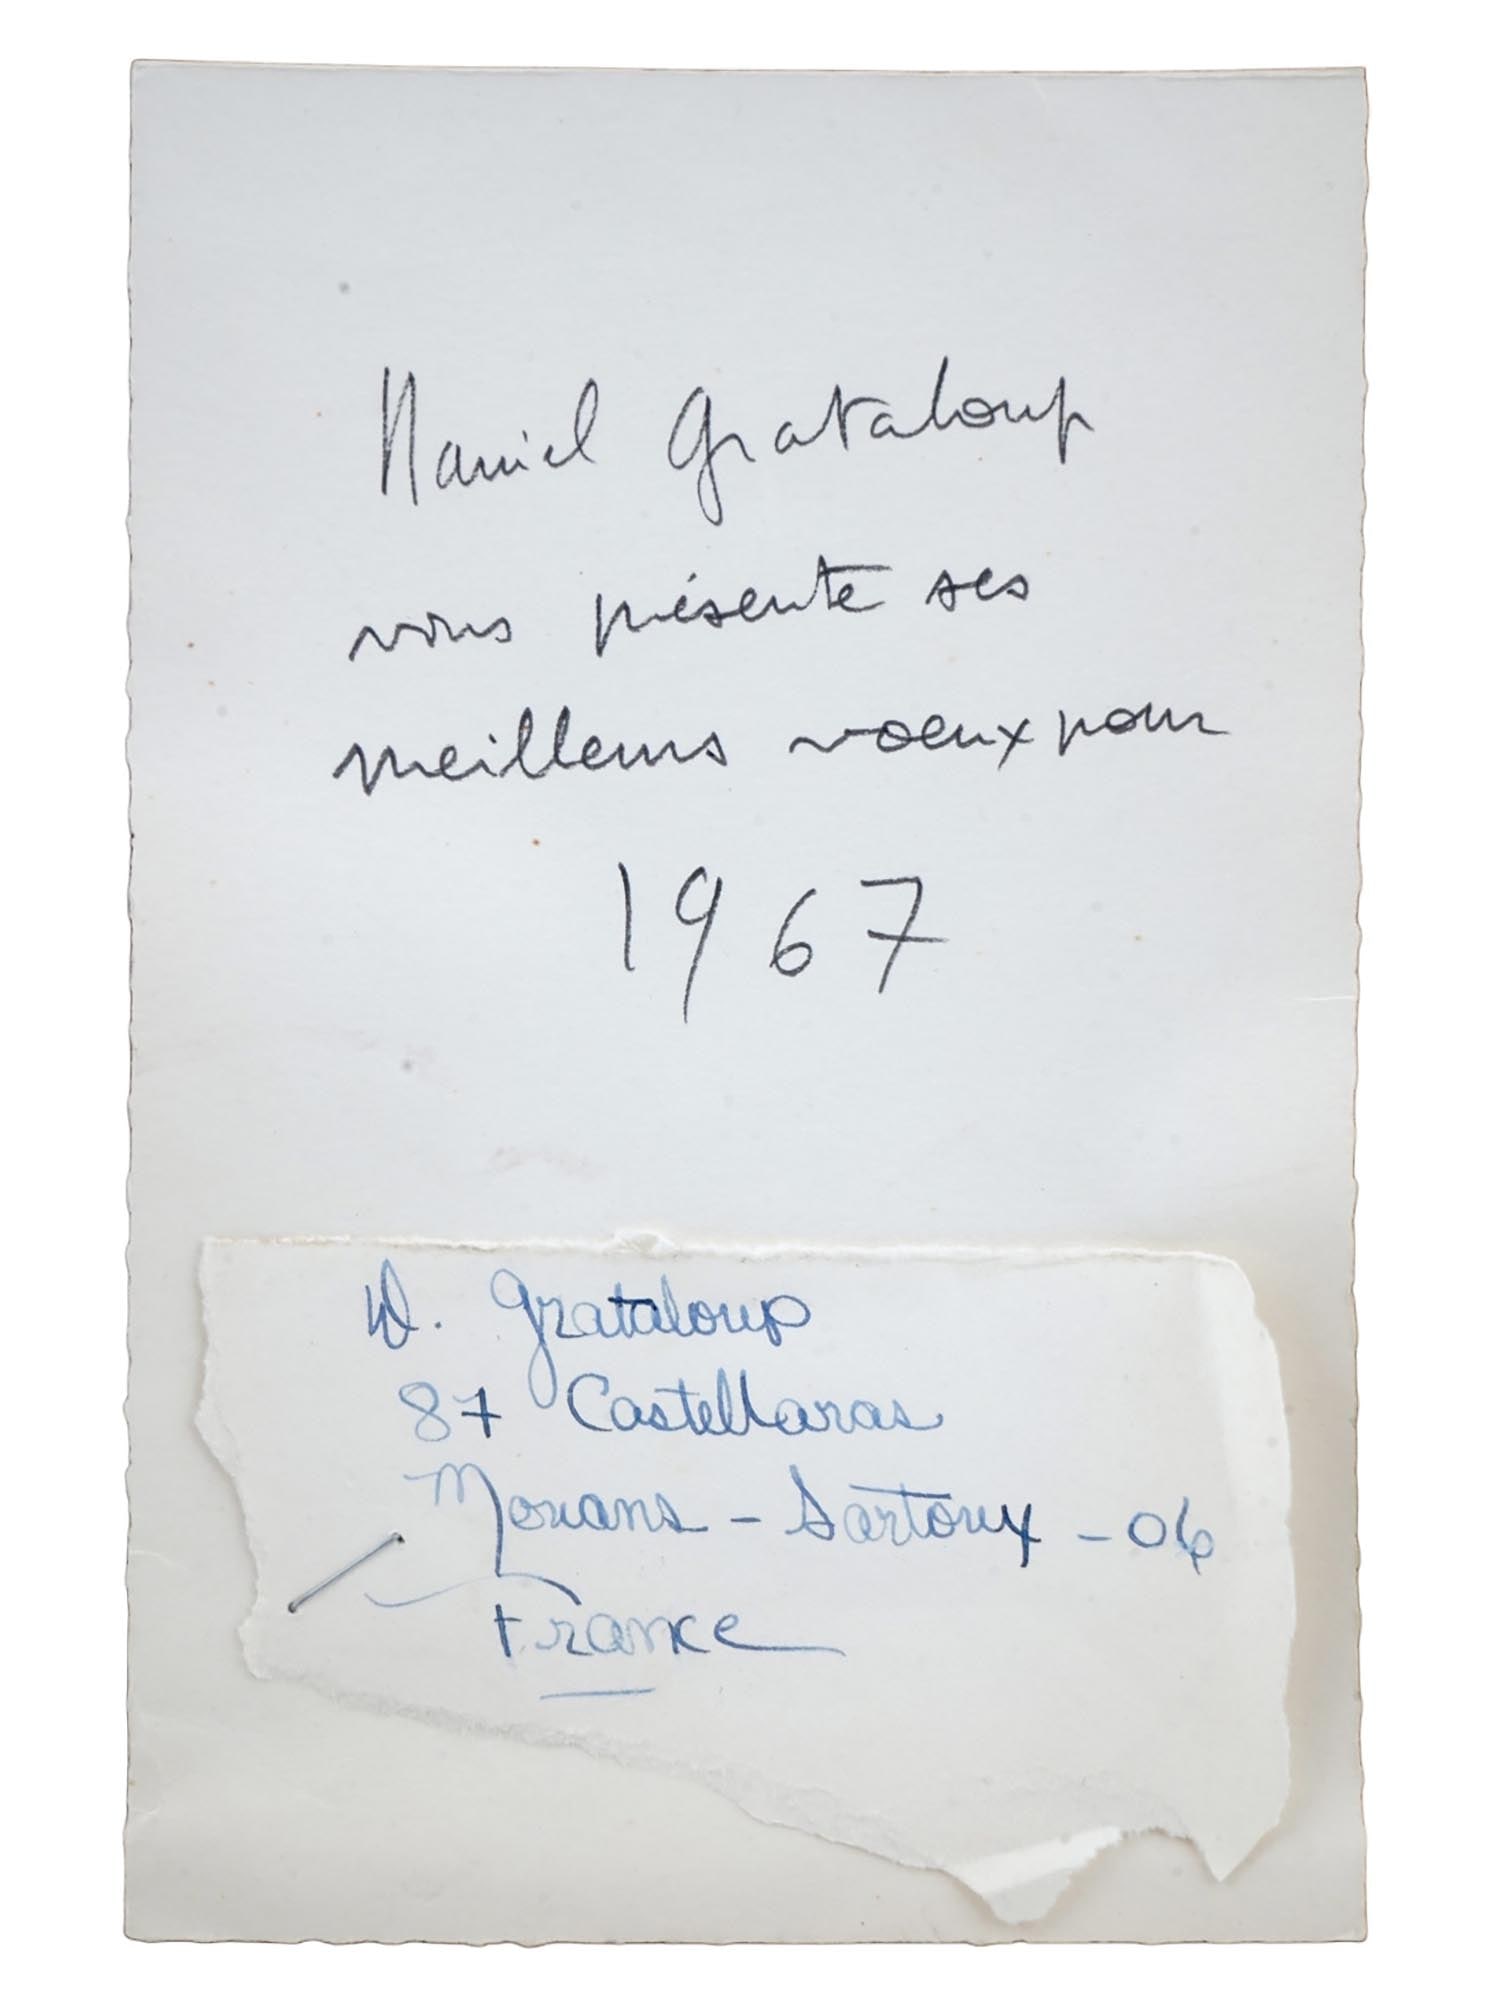 Daniel Grataloup
vous présente ses
meilleurs voeux pour
1967
D. Grataloup
87 Castellaras
Mouans - Sartoux - 06
France